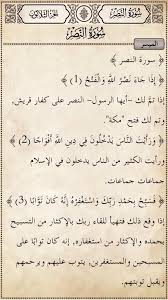 سُورَةُ النَّصْرِ
الجزء الثلاثون
سُورَةُ النَّصْرِ
الميسر
﴿ سورة النصر ﴾
﴿ إِذَا جَاءَ نَصْرُ اللَّهِ وَالْفَتْحُ (1) ﴾
إذا تمَّ لك -أيها الرسول- النصر على كفار قريش،
وتم لك فتح "مكة".
﴿ وَرَأَيْتَ النَّاسَ يَدْخُلُونَ فِي دِينِ اللَّهِ أَفْوَاجًا (2) ﴾
ورأيت الكثير من الناس يدخلون في الإسلام
جماعات جماعات.
﴿ فَسَبِّحْ بِحَمْدِ رَبِّكَ وَاسْتَغْفِرْهُ إِنَّهُ كَانَ تَوَّابًا (3) ﴾
إذا وقع ذلك فتهيأ للقاء ربك بالإكثار من التسبيح
بحمده والإكثار من استغفاره، إنه كان توابًا على
المسبحين والمستغفرين، يتوب عليهم ويرحمهم
ويقبل توبتهم.